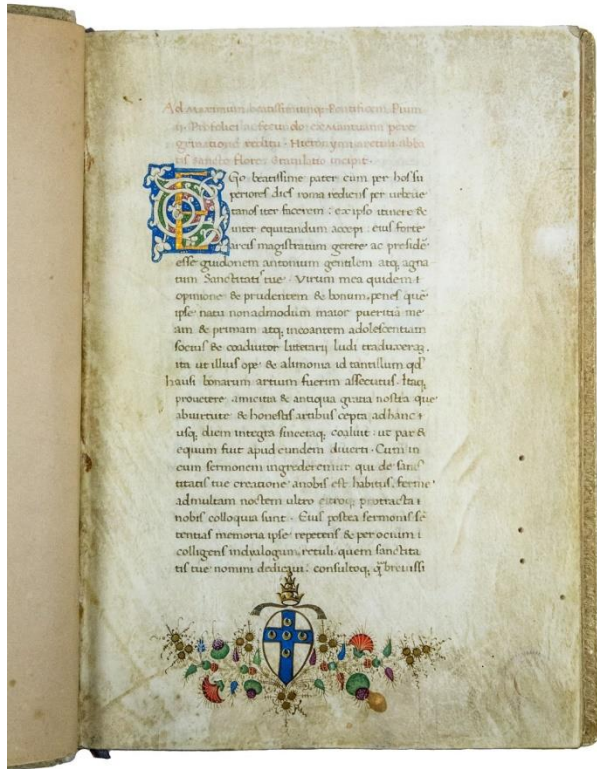 Ad Maximum beatissimumq; Pontificem Pium
.ii. Profectei ac fecundo ex Mantuana pere
grinatione reditu. Hieronymi aretini abba
tis sancte Flore Gratulatio incipit.
EGo beatissime pater cum per hos su
periores dies roma rediens per urbeue
tanos iter facerem: ex ipso itinere &
inter equitandum accepi: eius forte
arcis magistratum gerere ac preside
esse guidonem antonium gentilem atq; agna
tum Sanctitati tue. Virum mea quidem
opinione & prudentem & bonum. penes que
ipse natu non admodum maior pueritia me
am & primam atq; incoantem adolescentiam
socius & coadiutor litterarij ludi traduxeraz.
ita ut illius ope & alimonia id tantillum qd
hausi bonarum artium fuerim assecutus. Itaq;
prouetere amicitia & antiqua gratia nostra que
ab uirtute & honestis artibus cepta ad hanc
usq; diem integra sinceraq; coaluit: ut par &
equum fuit apud eundem diuerti. Cum in
eum sermonem ingrederemur qui de sanc
titatis tue creatione a nobis est habitus. ferme
ad multam noctem ultro citroq; protracta
nobis colloquia sunt. Eius postea sermonis se
tentias memoria ipse repetens & per ocium
colligens in dialogum retuli. quem sanctita
tis tue nomini dedicaui: consultoq; q breuissi